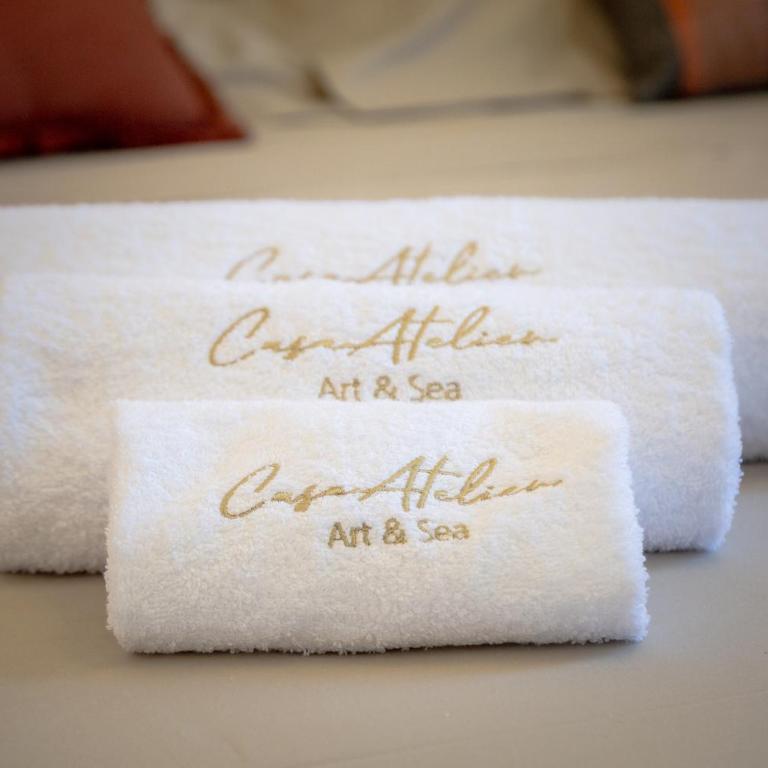 Casa Atelier
Casa Atelier
Art & Sea
Casa Atelier
Art & Sea